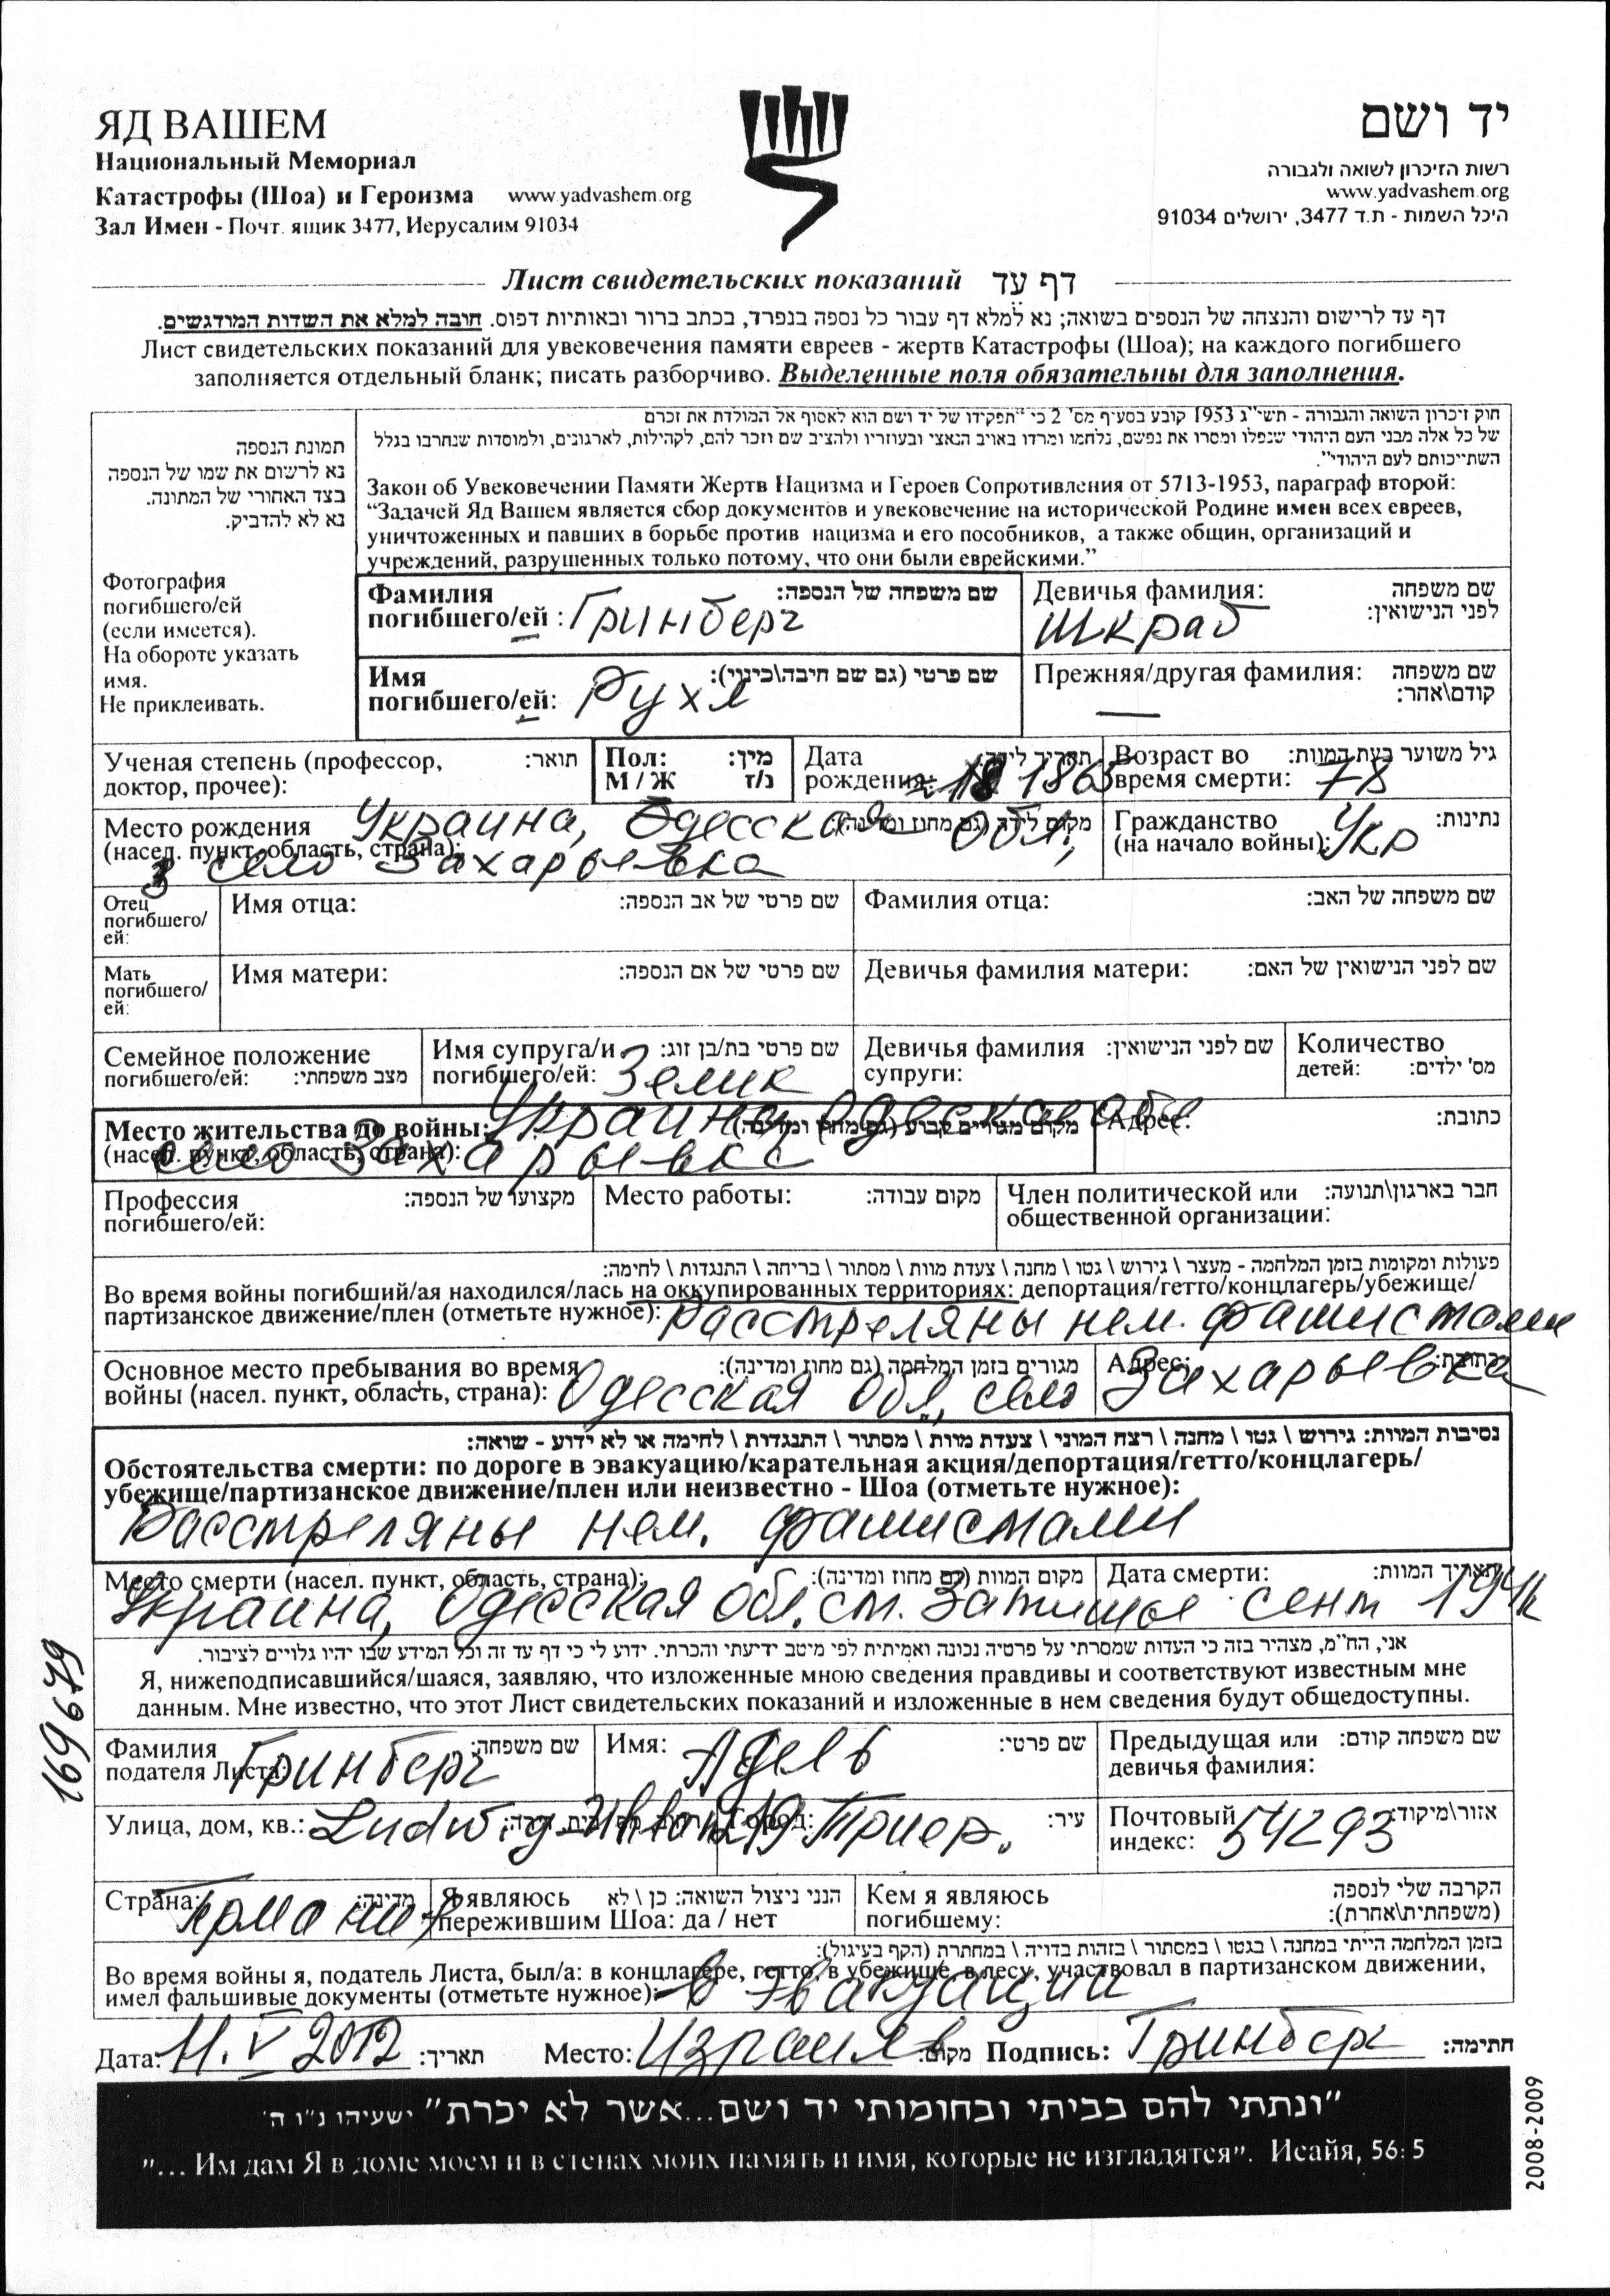 ЯД ВАШЕМ
Национальный Мемориал
Катастрофы (Шоа) и Героизма www.yadvashem.org
Зал Имен - Почт. ящик 3477, Иерусалим 91034
יד ושם
רשות הזיכרון לשואה ולגבורה
www.yadvashem.org
היכל השמות - ת.ד 3477, ירושלים 91034
Лист свидетельских показаний דף עד
דף עד לרישום והנצחה של הנספים בשואה; נא למלא דף עבור כל נספה בנפרד, בכתב ברור ובאותיות דפוס. חובה למלא את השדות המודגשים.
Лист свидетельских показаний для увековечения памяти евреев - жертв Катастрофы (Шоа); на каждого погибшего
заполняется отдельный бланк; писать разборчиво. Выделенные поля обязательны для заполнения.
תמונת הנספה
נא לרשום את שמו של הנספה
בצד האחורי של התמונה.
נא לא להדביק.
Фотография
погибшего/ей
(если имеется).
На обороте указать
имя.
Не приклеивать.
חוק זיכרון השואה והגבורה - תשי"ג 1953 קובע בסעיף מס' 2 כי "תפקידו של יד ושם הוא לאסוף אל המולדת את זכרם
של כל אלה מבני העם היהודי שנפלו ומסרו את נפשם, נלחמו ומרדו באויב הנאצי ובעוזריו ולהציב שם וזכר להם, לקהילות, לארגונים, ולמוסדות שנחרבו בגלל
השתייכותם לעם היהודי".
Закон об Увековечении Памяти Жертв Нацизма и Героев Сопротивления от 5713-1953, параграф второй:
“Задачей Яд Вашем является сбор документов и увековечение на исторической Родине имен всех евреев,
уничтоженных и павших в борьбе против нацизма и его пособников, а также общин, организаций и
учреждений, разрушенных только потому, что они были еврейскими.”
Фамилия שם משפחה של הנספה:
погибшего/ей : Гринберг
Девичья фамилия: שם משפחה
לפני הנישואין:
Шкраб
Имя שם פרטי (גם שם חיבה\כינוי):
погибшего/ей: Рухл
Прежняя/другая фамилия: שם משפחה
קודם\אחר:
—
Ученая степень (профессор, תואר:
доктор, прочее):
Пол: מין:
М / Ж נ/ז
Дата תאריך לידה:
рождения: 1865
Возраст во גיל משוער בעת המוות:
время смерти: 78
Место рождения מקום לידה (גם מחוז ומדינה):
(насел. пункт, область, страна):
Украина, Одесская обл,
село Захарьевка
Гражданство נתינות:
(на начало войны): Укр
Отец
погибшего/
ей:
Имя отца: שם פרטי של אב הנספה:
Фамилия отца: שם משפחה של האב:
Мать
погибшего/
ей:
Имя матери: שם פרטי של אם הנספה:
Девичья фамилия матери: שם לפני הנישואין של האם:
Семейное положение
погибшего/ей: מצב משפחתי:
Имя супруга/и שם פרטי בת/בן זוג:
погибшего/ей: Зелик
Девичья фамилия שם לפני הנישואין:
супруги:
Количество
детей: מס' ילדים:
Место жительства до войны: מקום מגורים קבוע (גם מחוז ומדינה):
(насел. пункт, область, страна):
Украина, Одесская обл
село Захарьевка
Адрес: כתובת:
Профессия מקצועו של הנספה:
погибшего/ей:
Место работы: מקום עבודה:
Член политической или חבר בארגון\תנועה:
общественной организации:
פעולות ומקומות בזמן המלחמה - מעצר \ גירוש \ גטו \ מחנה \ צעדת מוות \ מסתור \ בריחה \ התנגדות \ לחימה:
Во время войны погибший/ая находился/лась на оккупированных территориях: депортация/гетто/концлагерь/убежище/
партизанское движение/плен (отметьте нужное): Расстреляны нем. фашистами
Основное место пребывания во время מגורים בזמן המלחמה (גם מחוז ומדינה):
войны (насел. пункт, область, страна): Одесская обл., село
Адрес: כתובת:
Захарьевка
נסיבות המוות: גירוש \ גטו \ מחנה \ רצח המוני \ צעדת מוות \ מסתור \ התנגדות \ לחימה או לא ידוע - שואה:
Обстоятельства смерти: по дороге в эвакуацию/карательная акция/депортация/гетто/концлагерь/
убежище/партизанское движение/плен или неизвестно - Шоа (отметьте нужное):
Расстреляны нем. фашистами
Место смерти (насел. пункт, область, страна): מקום המוות (גם מחוז ומדינה):
Дата смерти: תאריך המוות:
Украина, Одесская обл. ст. Затишье сент 1941
אני, הח"מ, מצהיר בזה כי העדות שמסרתי על פרטיה נכונה ואמיתית לפי מיטב ידיעתי והכרתי. ידוע לי כי דף עד זה וכל המידע שבו יהיו גלויים לציבור.
Я, нижеподписавшийся/шаяся, заявляю, что изложенные мною сведения правдивы и соответствуют известным мне
данным. Мне известно, что этот Лист свидетельских показаний и изложенные в нем сведения будут общедоступны.
Фамилия שם משפחה:
подателя Листа: Гринберг
Имя: Адель שם פרטי:
Предыдущая или שם משפחה קודם:
девичья фамилия:
Улица, дом, кв.: Ludwig
Город: Триер. עיר:
Почтовый אזור\מיקוד:
индекс: 54293
Страна: Германия מדינה:
Я являюсь הנני ניצול השואה: כן \ לא
пережившим Шоа: да / нет
Кем я являюсь הקרבה שלי לנספה
погибшему: (משפחתית\אחרת):
בזמן המלחמה הייתי במחנה \ בגטו \ במסתור \ בזהות בדויה \ במחתרת (הקף בעיגול):
Во время войны я, податель Листа, был/а: в концлагере, гетто, в убежище, в лесу, участвовал в партизанском движении,
имел фальшивые документы (отметьте нужное): в эвакуации
Дата: 11.V 2012 תאריך: Место: Израиль מקום: Подпись: Гринберг חתימה:
"ונתתי להם בביתי ובחומותי יד ושם...אשר לא יכרת" ישעיהו נ"ו ה'
"... Им дам Я в доме моем и в стенах моих память и имя, которые не изгладятся". Исайя, 56: 5
169679
2008-2009